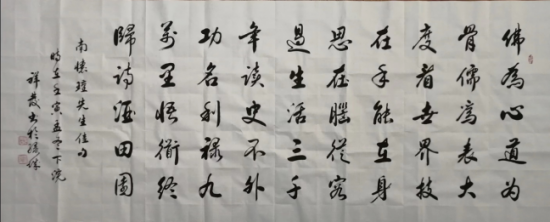 佛為心道为
骨儒為表大
度看世界技
在手能在身
思在腦從容
過生活三千
年读史不外
功名利禄九
萬里悟衜終
歸詩酒田園
南懷瑾先生佳句
時在壬寅孟冬下浣
祥發书於